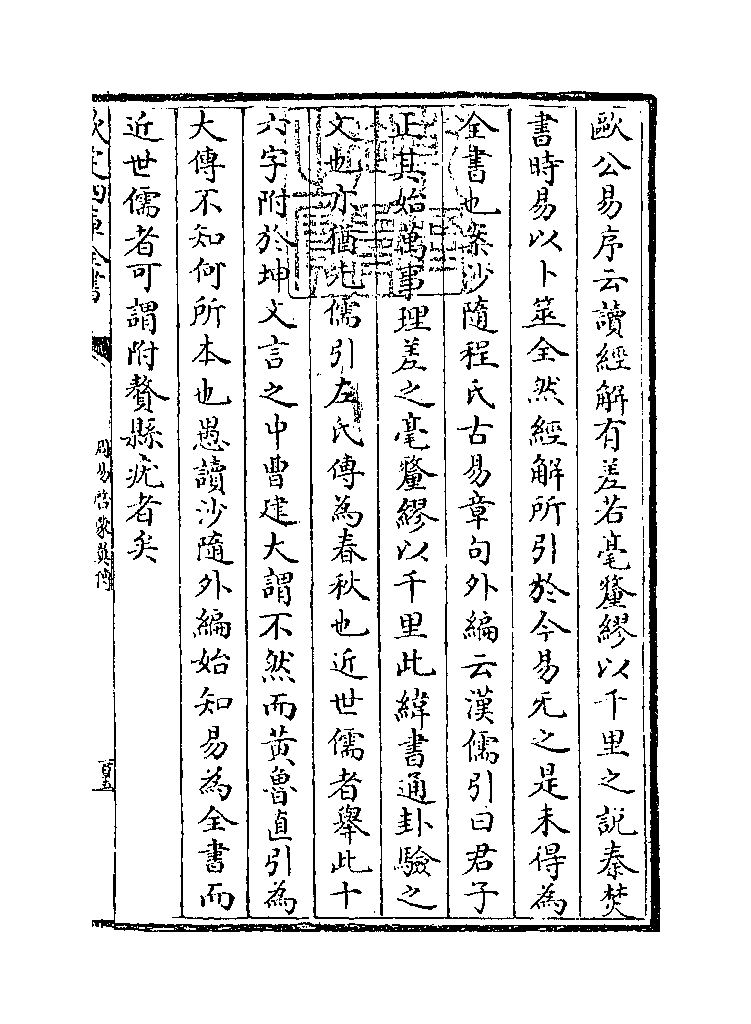 歐公易序云讀經解有差若毫釐繆以千里之説秦焚
書時易以卜筮全然經解所引於今易无之是未得為
全書也案沙隨程氏古易章句外編云漢儒引曰君子
正其始萬事理差之毫釐繆以千里此緯書通卦驗之
文也亦猶先儒引左氏傳為春秋也近世儒者舉此十
六字附於坤文言之中曹建大謂不然而黄魯直引為
大傳不知何所本也愚讀沙隨外編始知易為全書而
近世儒者可謂附贅縣疣者矣
欽定四庫全書
周易啓蒙翼傳